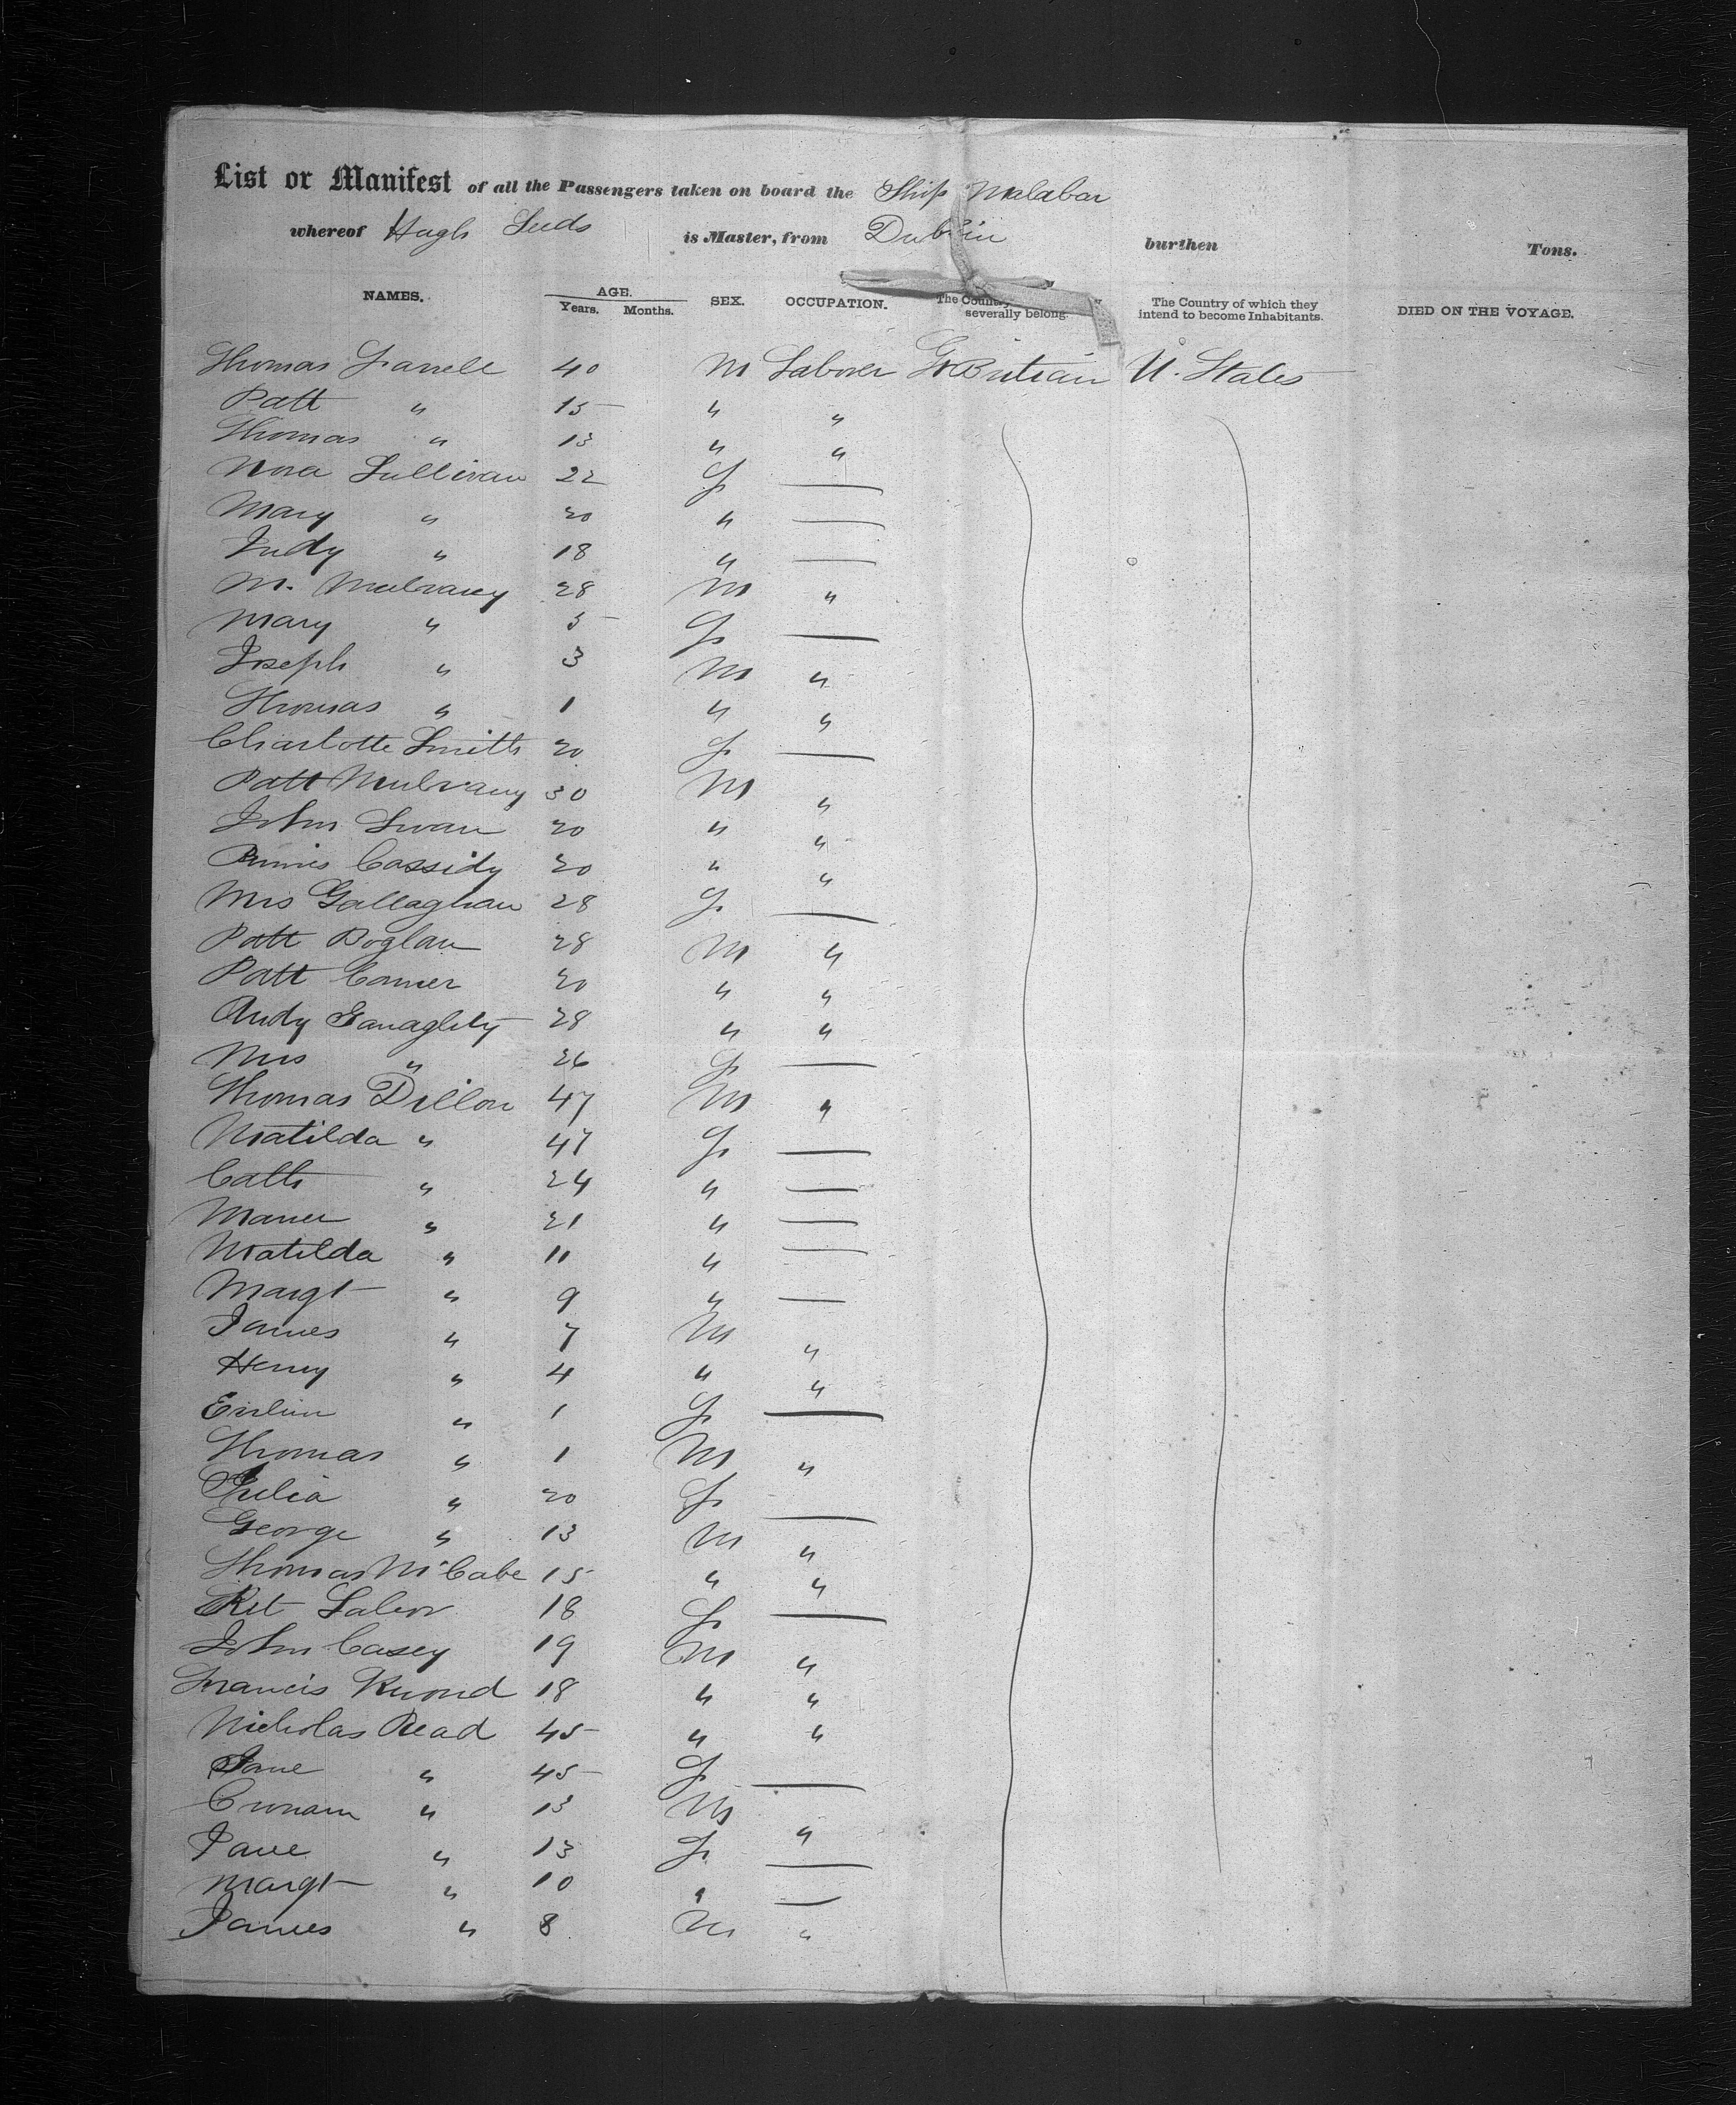 List or Manifest of all the Passengers taken on board the Ship Malabar
whereof Hugh Leeds is Master, from Dublin burthen Tons.
NAMES. AGE. Years. Months. SEX. OCCUPATION. The Country severally belong. The Country of which they intend to become Inhabitants. DIED ON THE VOYAGE.
Thomas Farrell 40 M Laborer Gt Britain U. States
Patt " 15 " "
Thomas " 13 " "
Nora Sullivan 22 F —
Mary " 20 " —
Judy " 18 " —
M. Mulvany 28 M "
Mary " 5 F —
Joseph " 3 M "
Thomas " 1 " "
Charlotte Smith 20 F —
Patt Mulvany 30 M "
John Swan 20 " "
Cassidy 20 " "
Mrs Gallaghan 28 F —
Patt Boglan 28 M "
Patt Comer 20 " "
Andy 28 " "
Mrs " 26 F —
Thomas Dillon 47 M "
Matilda " 47 F —
Cath " 24 " —
" 21 " —
Matilda " 11 " —
Margt " 9 " —
James " 7 M "
Henry " 4 " "
" 1 F —
Thomas " 1 M "
Julia " 20 F —
George " 13 M "
Thomas McCabe 15 " "
18 F —
John Casey 19 M "
Francis 18 " "
Nicholas Read 45 " "
Jane " 45 F —
" 13 M "
Jane " 13 F —
Margt " 10 " —
James " 8 M "